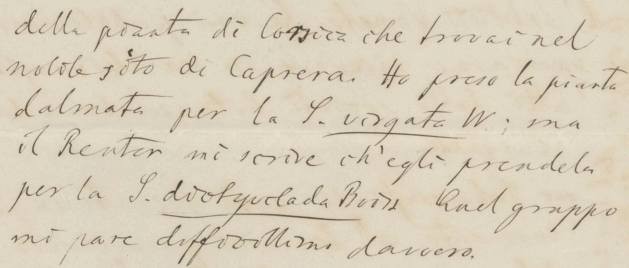 della pianta di Corsica che trovai nel
nobile sito di Caprera. Ho preso la pianta
dalmata per la S. virgata W.; ma
il Reuter mi scrive ch'egli prendela
per la S. dictyoclada Boiss Quel gruppo
mi pare difficillimo davvero.